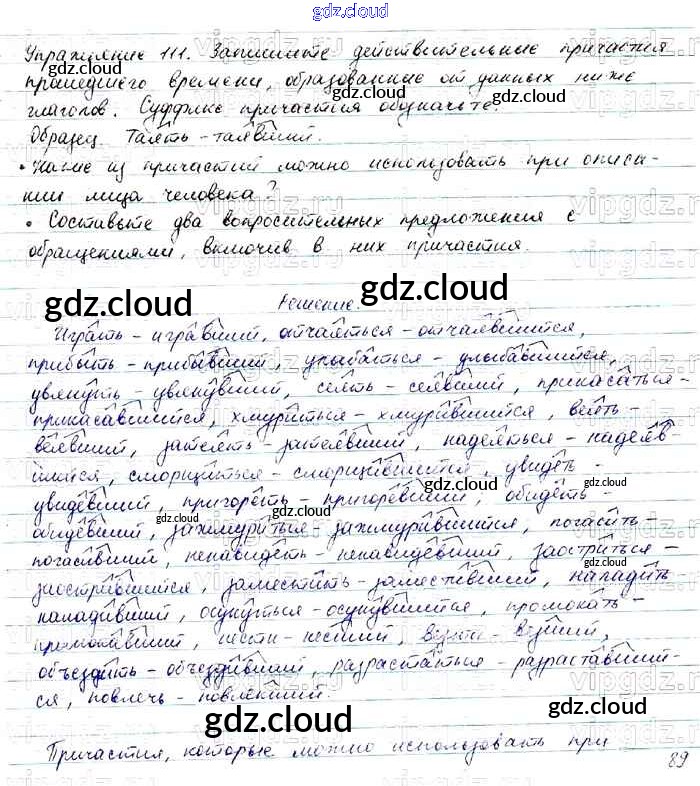 gdz.cloud
Упражнение 111. Запишите действительные причастия
прошедшего времени, образованные от данных ниже
глаголов. Суффикс причастия обозначьте.
Образец. Таять - таявший.
• Какие из причастий можно использовать при описа-
нии лица человека?
• Составьте два вопросительных предложения с
обращениями, включив в них причастия.
Решение.
Играть - игравший, отчаяться - отчаявшийся,
прибыть - прибывший, улыбаться - улыбавшийся,
увянуть - увянувший, сеять - сеявший, прикасаться -
прикасавшийся, хмуриться - хмурившийся, веять -
веявший, затеять - затеявший, надеяться - надеяв-
шийся, сморщиться - сморщившийся, увидеть -
увидевший, пригореть - пригоревший, обидеть -
обидевший, зажмуриться - зажмурившийся, погасить -
погасивший, ненавидеть - ненавидевший, заостриться -
заострившийся, заместить - заместивший, наладить
наладивший, осунуться - осунувшийся, промокать -
промокавший, нести - нёсший, везти - вёзший,
объездить - объездивший, разрастаться - разраставший-
ся, повлечь - повлёкший.
Причастия, которые можно использовать при
89